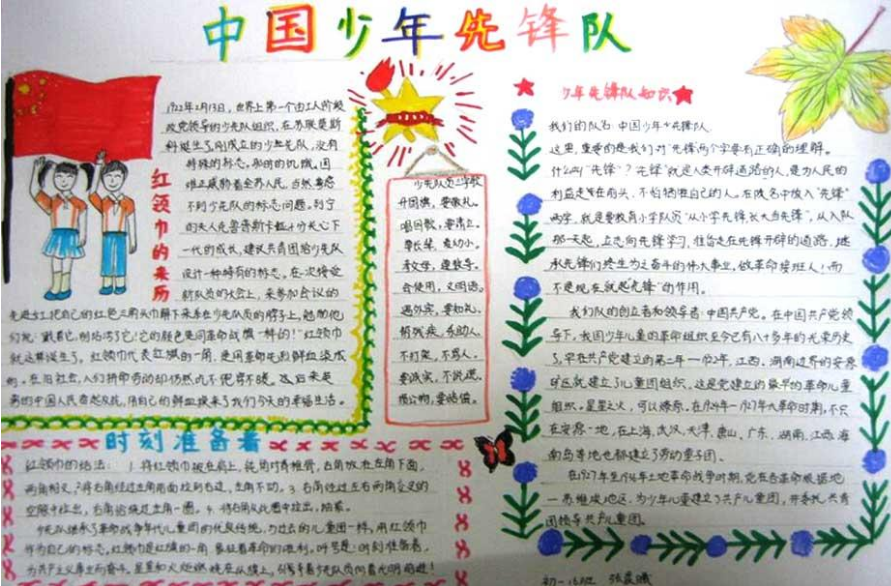 中国少年先锋队
红领巾的来历
1922年2月13日,世界上第一个由工人阶级
政党领导的少先队组织,在苏联莫斯
科诞生了。刚成立的少先队,没有
特殊的标志。那时的饥饿、困
难正威胁着全苏人民,当然考虑
不到少先队的标志问题。列宁
的夫人克鲁普斯卡娅十分关心下
一代的成长,建议共青团给少先队
设计一种特殊的标志。在一次接受
新队员的大会上,来参加会议的
先进女工把自己的红色三角头巾解下来系在少先队员的脖子上,勉励他
们说:“戴着它,别玷污了它!它的颜色是同革命战旗一样的!”红领巾
就这样诞生了。红领巾代表红旗的一角,是用革命先烈鲜血染成
的。在旧社会,人们拼命劳动却仍然吃不饱穿不暖。
的中国人民奋起反抗,用自己的鲜血换来了我们今天的幸福生活。
时刻准备着
红领巾的结法:1.将红领巾披在肩上,钝角对脊椎骨,右角放在左角下面,
两角相交。2.将右角经过左角前面拉到右边,左角不动。3.右角经过左右两角交叉的
空隙中拉出,右角绕过左角一圈。4.将右角从此圈中拉出,抽紧。
少先队继承了革命战争年代儿童团的优良传统,与过去的儿童团一样,用红领巾
作为自己的标志。红领巾是红旗的一角,象征着革命的胜利。呼号是:时刻准备着,
为共产主义事业而奋斗。星星和火炬
少先队员三字歌
升国旗,要敬礼。
唱国歌,要肃立。
尊长辈,爱幼小。
孝父母,遵教导。
会使用,文明语。
遇外宾,要知礼。
帮残疾,乐助人。
不打架,不骂人。
要诚实,不说谎。
惜公物,要赔偿。
少年先锋队知识
我们的队名:中国少年先锋队
这里,重要的是我们对“先锋”两个字要有正确的理解。
什么叫“先锋”?“先锋”就是人类开辟道路的人,是为人民的
利益走在前头,不怕牺牲自己的人。在队名中放入“先锋”
两字,就是要教育小学队员“从小学先锋长大当先锋”,从入队
那一天起,立志向先锋学习,沿着走在先锋开辟的道路,继
承先锋们终生为之奋斗的伟大事业,做革命接班人!而
不是现在就起“先锋”的作用。
我们队的创立者和领导者:中国共产党。在中国共产党领
导下,我国少年儿童的革命组织至今已有八十多年的光荣历史
了,早在共产党建立的第二年一1922年,江西、湖南边界的安源
矿区就建立了儿童团组织。这是党建立的最早的革命儿童
组织。星星之火,可以燎原。在1924年一1927年大革命时期,不只
在安源一地,在上海、武汉、天津、唐山、广东、湖南、江西、海
南岛等地也都建立了劳动童子团。
在1927年至1936年土地革命战争时期,党在各革命根据地
一苏维埃地区,为少年儿童建立了共产儿童团,并委托共青
团领导共产儿童团。